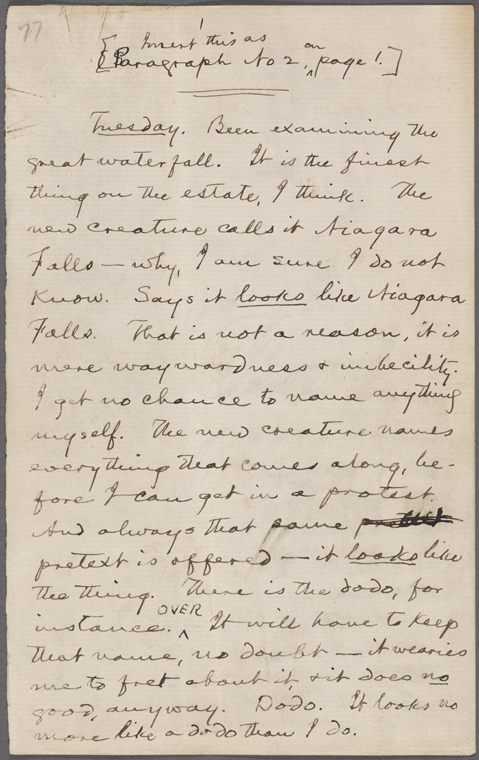 77
Insert this as
[Paragraph No 2, on page 1.]
Tuesday. Been examining the
great waterfall. It is the finest
thing on the estate, I think. The
new creature calls it Niagara
Falls — why, I am sure I do not
know. Says it looks like Niagara
Falls. That is not a reason, it is
mere waywardness & imbecility.
I get no chance to name anything
myself. The new creature names
everything that comes along, be-
fore I can get in a protest.
And always that same
pretext is offered — it looks like
the thing. There is the dodo, for
instance. OVER It will have to keep
that name, no doubt — it wearies
me to fret about it, & it does no
good, anyway. Dodo. It looks no
more like a dodo than I do.